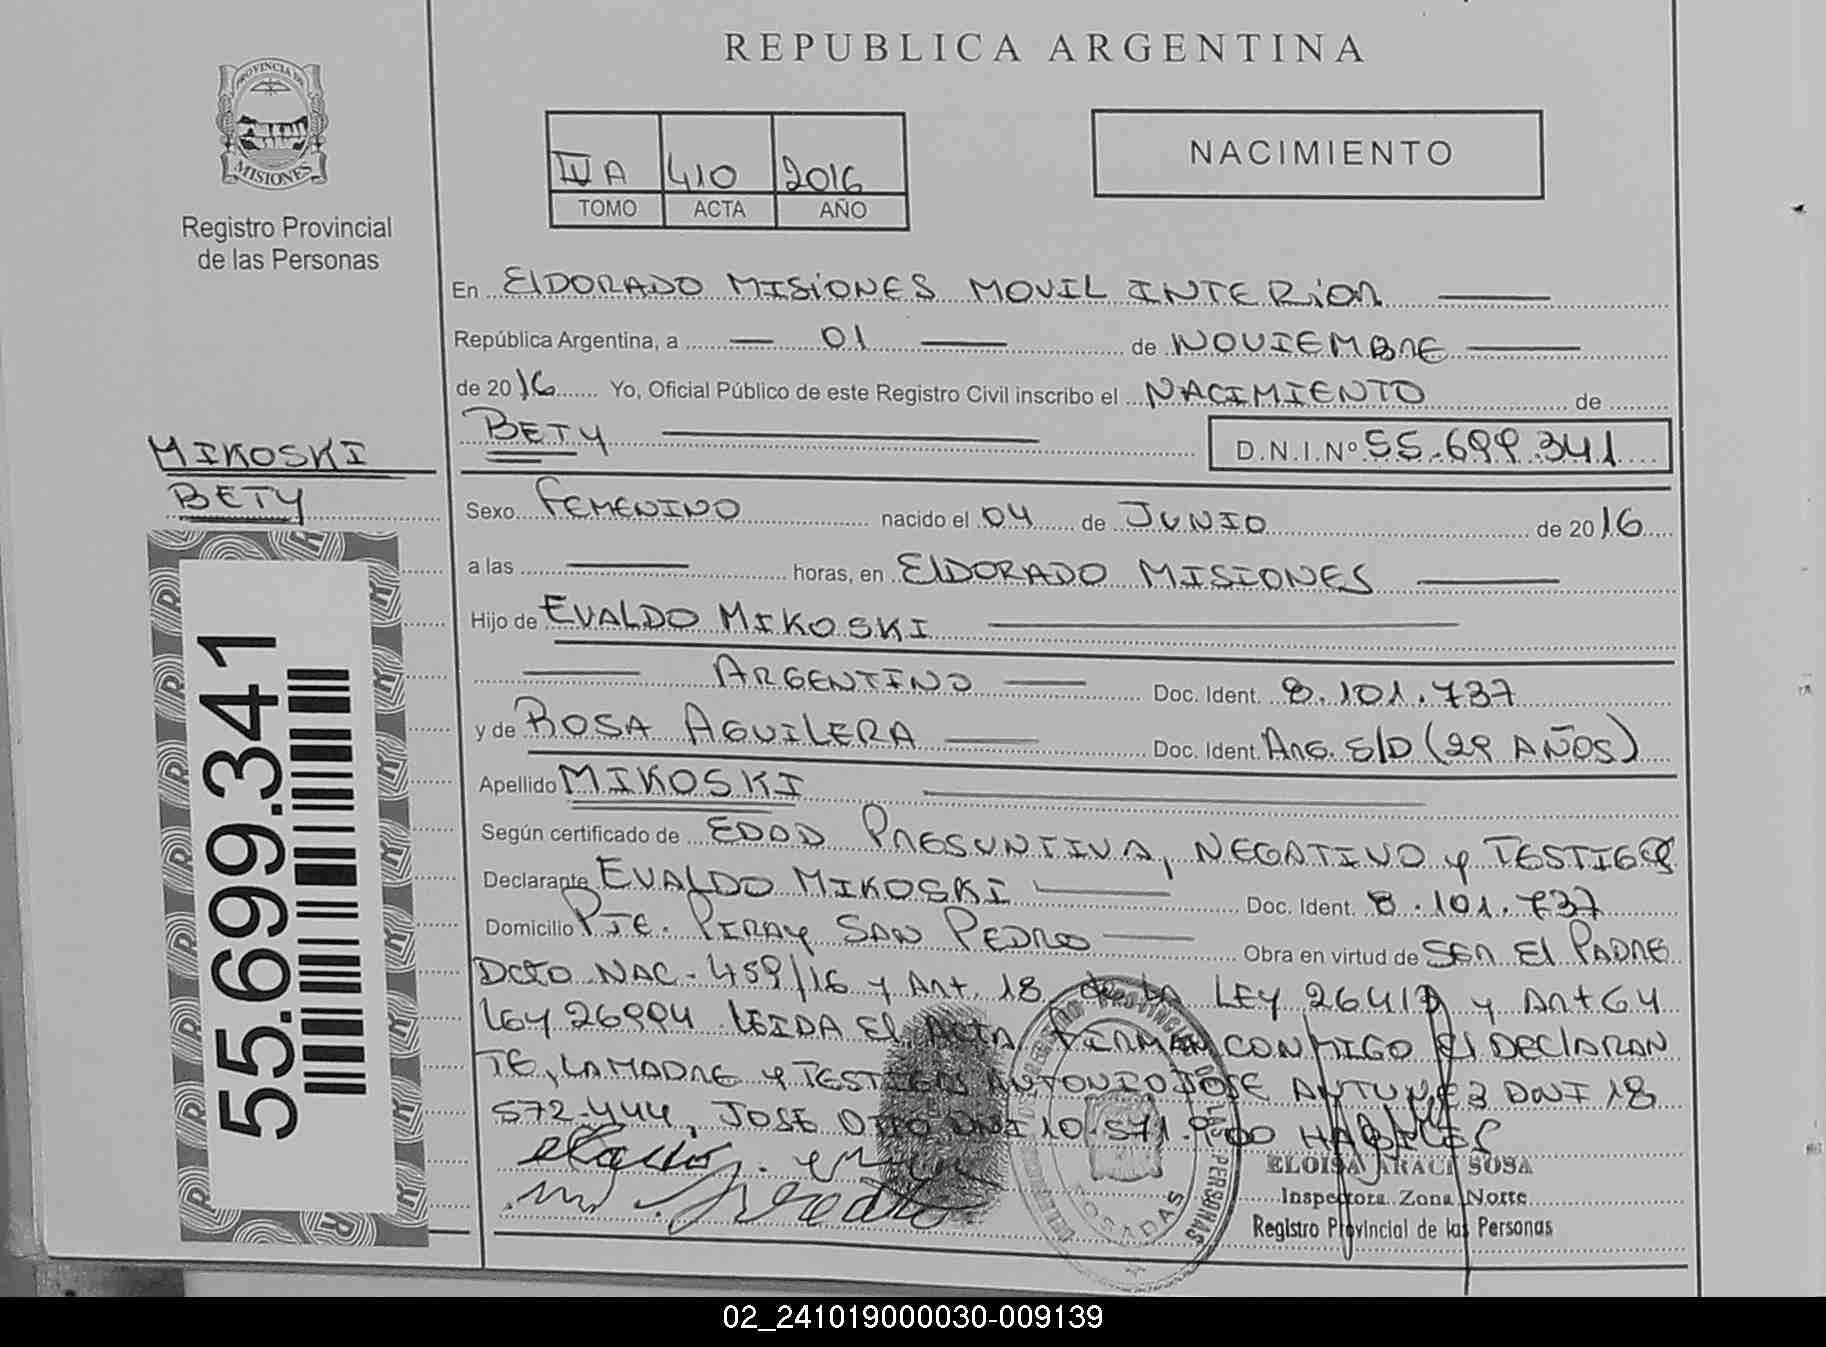 REPUBLICA ARGENTINA
PROVINCIA DE
MISIONES
Registro Provincial
de las Personas
IV A 410 2016
TOMO ACTA AÑO
NACIMIENTO
En ElDORADO MISIONES MOVIL INTERIOR
República Argentina, a 01 de NOVIEMBRE
de 2016 Yo, Oficial Público de este Registro Civil inscribo el NACIMIENTO de
BETY D.N.I.Nº 55.699.341
MIKOSKI
BETY
55.699.341
Sexo FEMENINO nacido el 04 de JUNIO de 2016
a las horas, en ElDORADO MISIONES
Hijo de EVALDO MIKOSKI
ARGENTINO Doc. Ident. 8.101.737
y de ROSA AGUILERA Doc. Ident. ARG. S/D (29 AÑOS)
Apellido MIKOSKI
Según certificado de EDAD PRESUNTIVA, NEGATIVO y TESTIGOS
Declarante EVALDO MIKOSKI Doc. Ident. 8.101.737
Domicilio PJE. PIRAY SAN PEDRO Obra en virtud de SER El PADRE
DCTO NAC. 459/16 y ART. 18 de LA LEY 26413 y ART 64
LEY 26994. LEIDA El ACTA FIRMAN CONMIGO El DEClARAN
TE, LA MADRE y TESTIGOS ANTONIO JOSE ANTUNEZ DNI 18
572.444, JOSE OTTO DNI 10.571. HABILES
POSADAS
ELOISA ARACI SOSA
Inspectora Zona Norte
Registro Provincial de las Personas
02_241019000030-009139